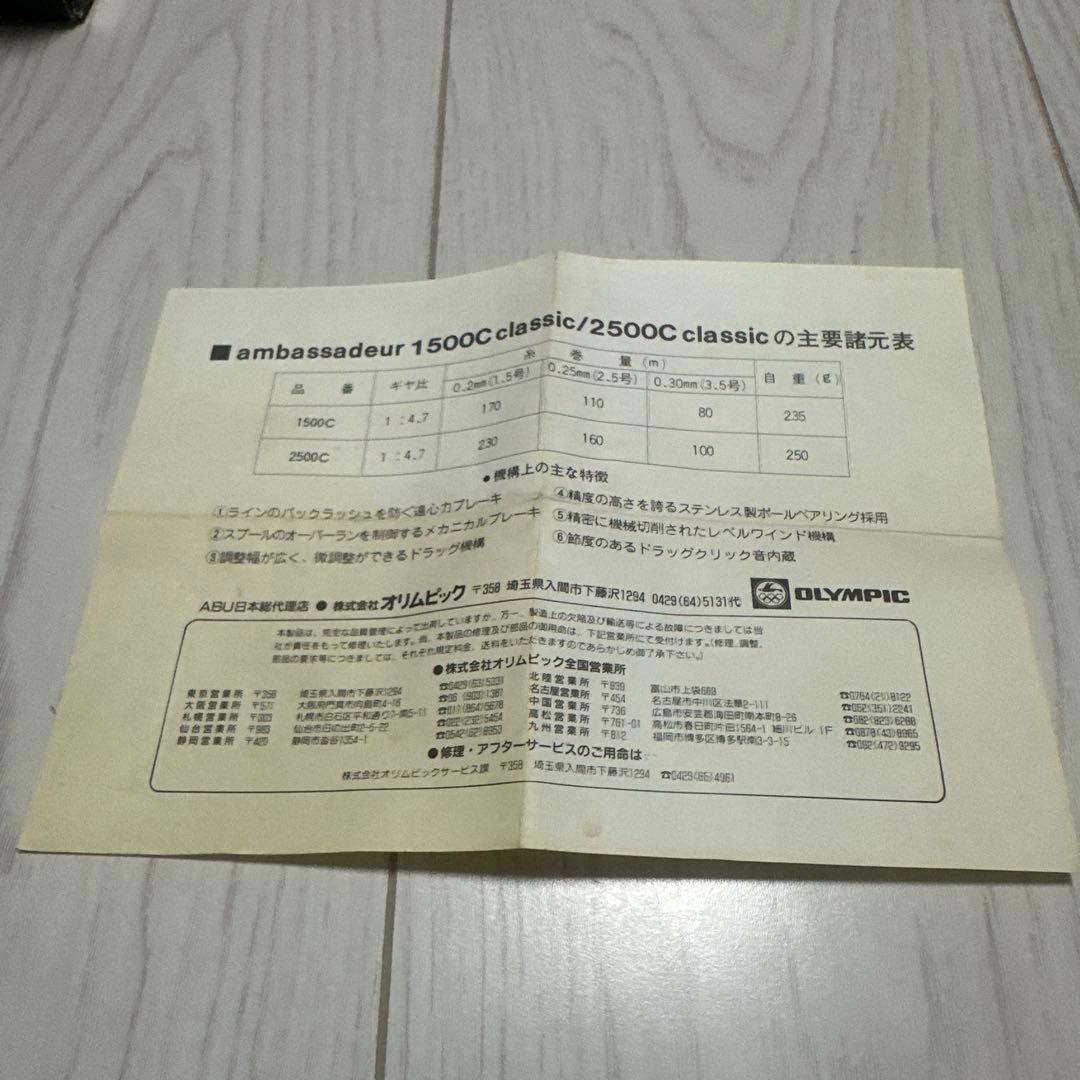 ■ ambassadeur 1500C classic/2500C classic の主要諸元表
品番 ギヤ比 糸巻量(m) 自重(g)
0.2mm(1.5号) 0.25mm(2.5号) 0.30mm(3.5号)
1500C 1:4.7 170 110 80 235
2500C 1:4.7 230 160 100 250
●機構上の主な特徴
①ラインのバックラッシュを防ぐ遠心力ブレーキ
②スプールのオーバーランを制御するメカニカルブレーキ
③調整幅が広く、微調整ができるドラッグ機構
④精度の高さを誇るステンレス製ボールベアリング採用
⑤精密に機械切削されたレベルワインド機構
⑥節度のあるドラッグクリック音内蔵
ABU日本総代理店 ● 株式会社オリムピック 〒358 埼玉県入間市下藤沢1294 0429(64)5131代 OLYMPIC
本製品は、完全な品質管理によって出荷していますが、万一、製造上の欠陥及び輸送等による故障につきましては当
社が責任をもって修理いたします。尚、本製品の修理及び部品の御用命は、下記営業所にて受付けます。(修理、調整、
部品の要求等につきましては、それぞれ規定料金、送料をいただきますのであらかじめ御了承下さい。)
●株式会社オリムピック全国営業所
東京営業所 〒358 埼玉県入間市下藤沢1294
大阪営業所 〒571 大阪府門真市向島町4-16 ☎06(903)1381
札幌営業所 〒003 札幌市白石区平和通り7-南5-11 ☎011(864)5678
仙台営業所 〒983 ☎022(232)5454
静岡営業所 〒420 静岡市沓谷1354-1
北陸営業所 〒939 富山市上袋669 ☎0764(23)8122
名古屋営業所 〒454 名古屋市中川区法華2-111 ☎052(351)2241
中国営業所 〒736 広島市安芸郡海田町南本町8-26 ☎082(823)6288
高松営業所 〒761-01 高松市春日町片田1564-1 細川ビル 1F ☎0878(43)8965
九州営業所 〒812 福岡市博多区博多駅南3-3-15 ☎092(472)8295
●修理・アフターサービスのご用命は
株式会社オリムピックサービス課 〒358 埼玉県入間市下藤沢1294 ☎0429(65)4961